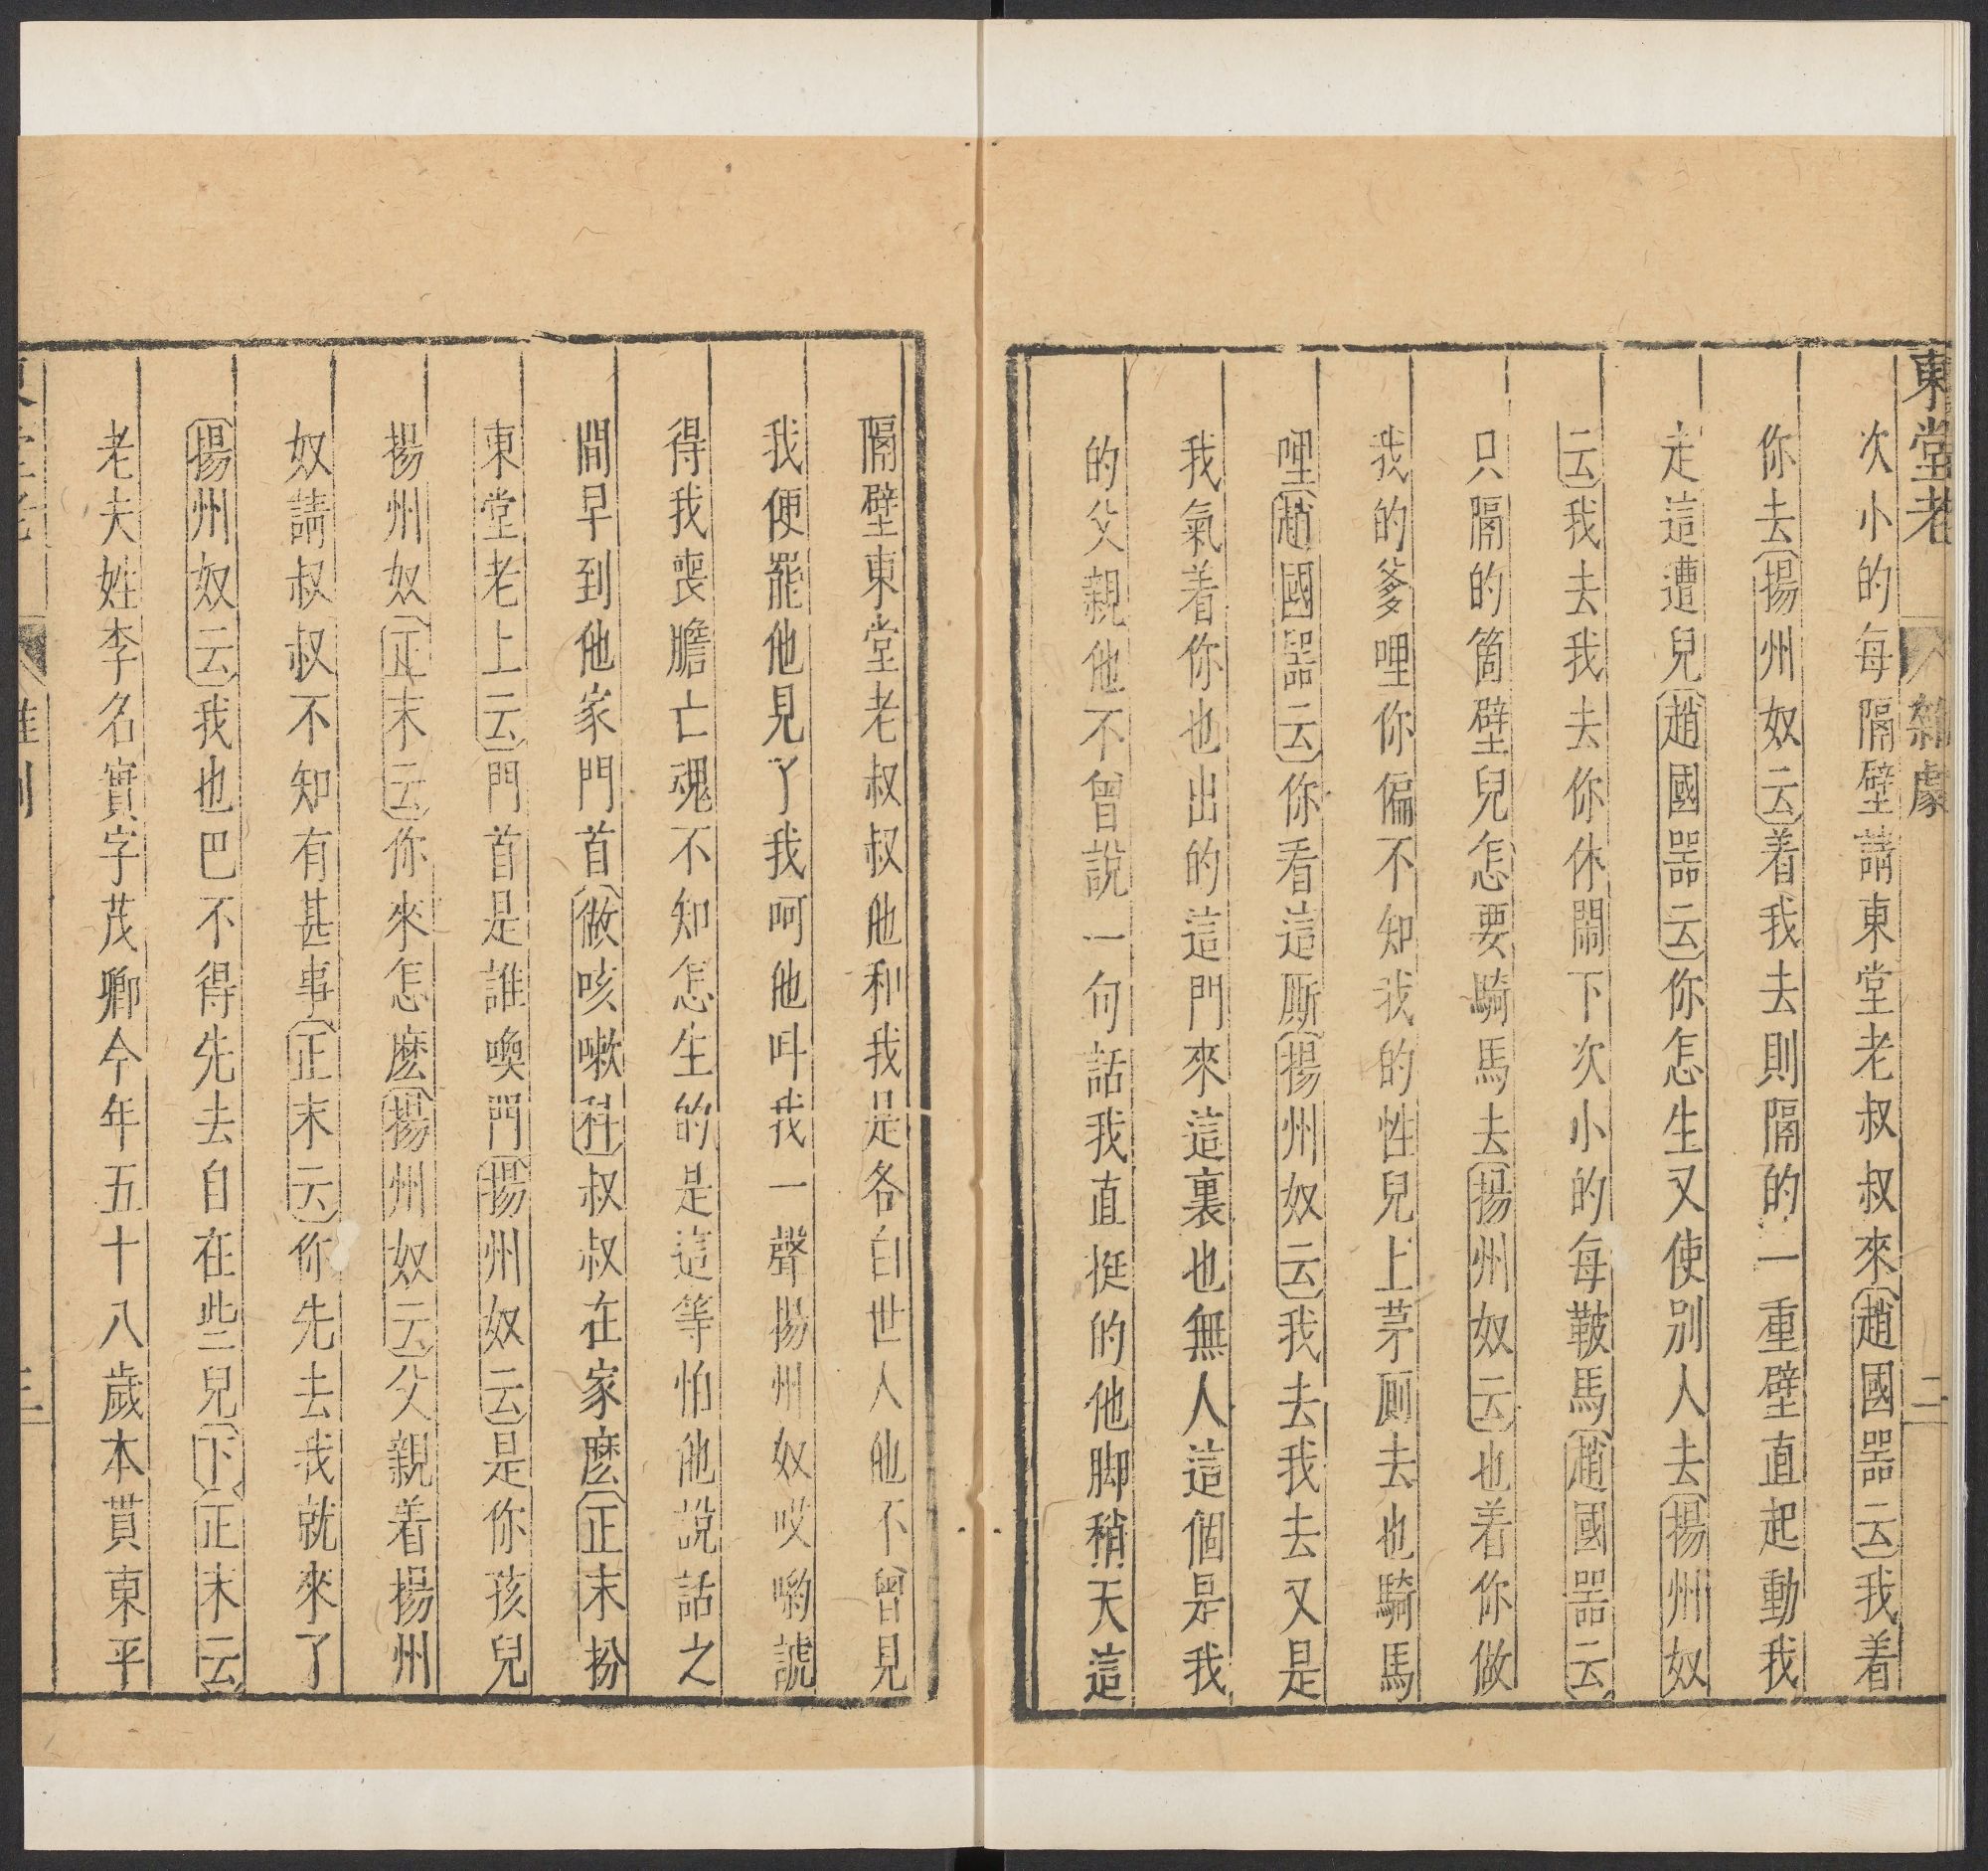 東堂老 雜劇 二
次小的每隔壁請東堂老叔叔來趙國器云我着
你去揚州奴云着我去則隔的一重壁直起動我
走這遭兒趙國器云你怎生又使別人去揚州奴
云我去我去你休鬧下次小的每鞁馬趙國器云
只隔的箇壁兒怎要騎馬去揚州奴云也着你做
我的爹哩你偏不知我的性兒上茅厠去也騎馬
哩趙國器云你看這厮揚州奴云我去我去又是
我氣着你也出的這門來這裏也無人這個是我
的父親他不曾說一句話我直挺的他脚稍天這
隔壁東堂老叔叔他和我是各白世人他不曾見
我便罷他見了我呵他呌我一聲揚州奴哎喲諕
得我喪膽亡魂不知怎生的是這等怕他說話之
間早到他家門首做咳嗽科叔叔在家麽正末扮
東堂老上云門首是誰喚門揚州奴云是你孩兒
揚州奴正末云你來怎麽揚州奴云父親着揚州
奴請叔叔不知有甚事正末云你先去我就來了
揚州奴云我也巴不得先去自在些兒下正末云
老夫姓李名實字茂卿今年五十八歲本貫東平